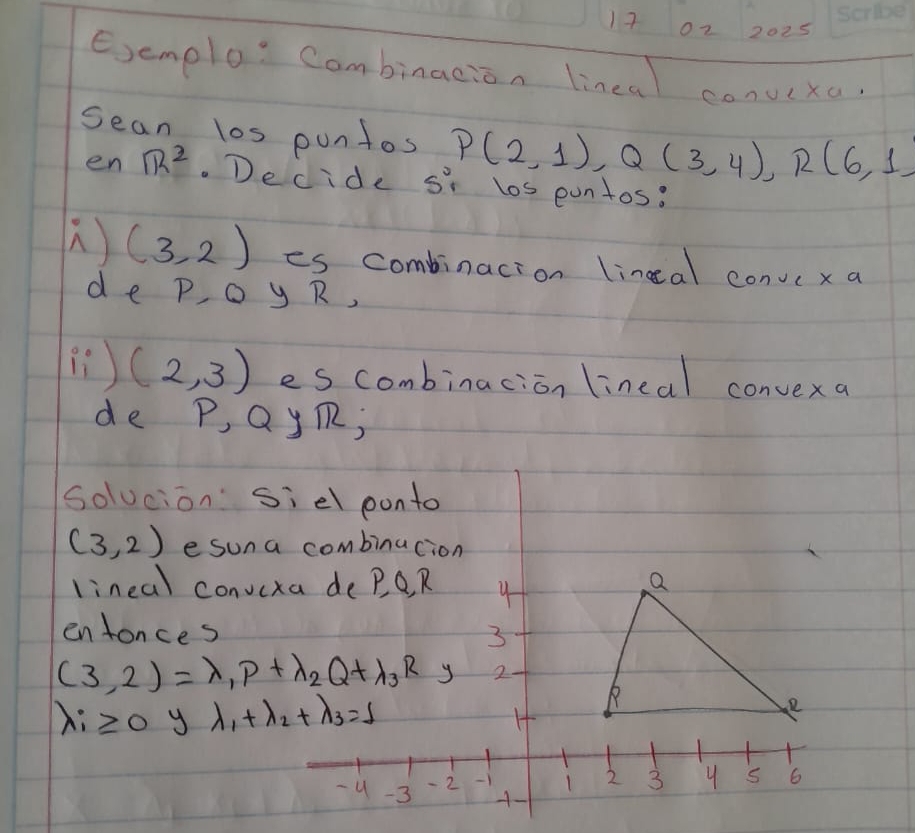 Scribe
17 02 2025
Ejemplo: Combinación lineal convexa.
Sean los puntos P(2,1), Q(3,4), R(6,1)
en ℝ². Decide si los puntos:
i) (3,2) es combinacion lineal convexa
de P, Q y R,
ii) (2,3) es combinación lineal convexa
de P, Q y ℝ;
Solución: Si el punto
(3,2) es una combinacion
lineal convexa de P,Q,R
entonces
(3,2) = λ₁P + λ₂Q + λ₃R y
λi ≥ 0 y λ₁ + λ₂ + λ₃ = 1
Q
4
3
2
P R
1
-4 -3 -2 -1 1 2 3 4 5 6
-1